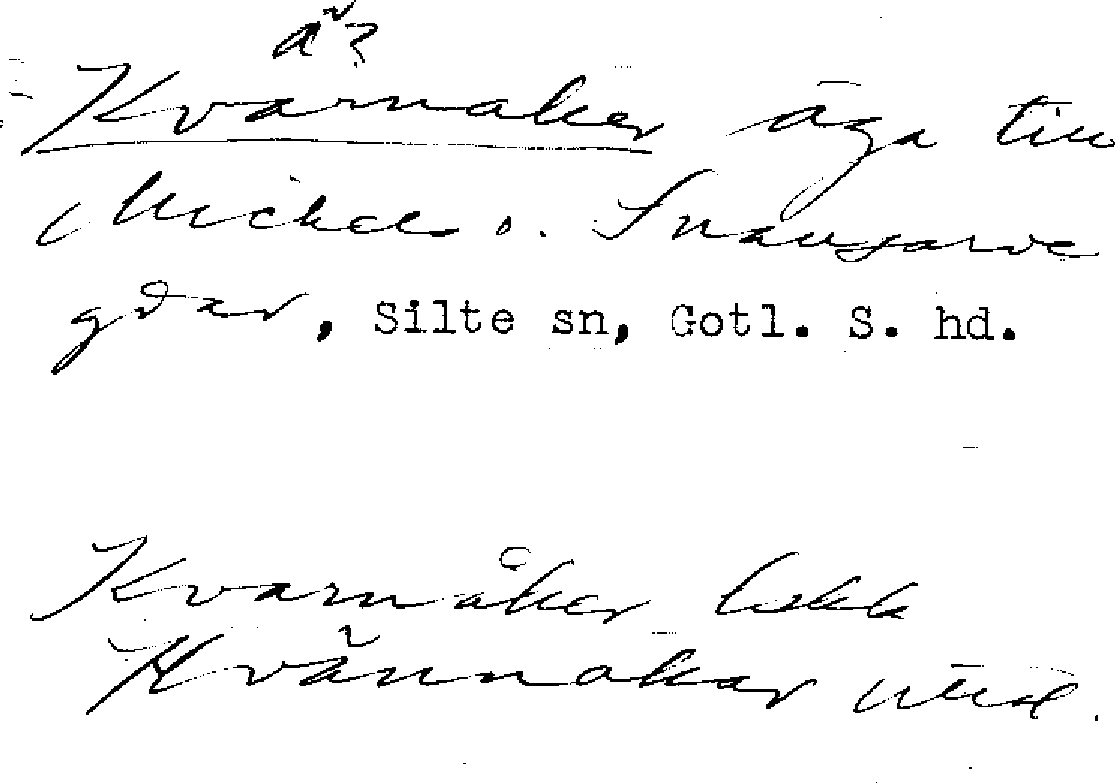 ä?
Kvarnaker äga till
Mickels o. Snausarve
gdar, Silte sn, Gotl. S. hd.
Kvarnåker
Kvännakar